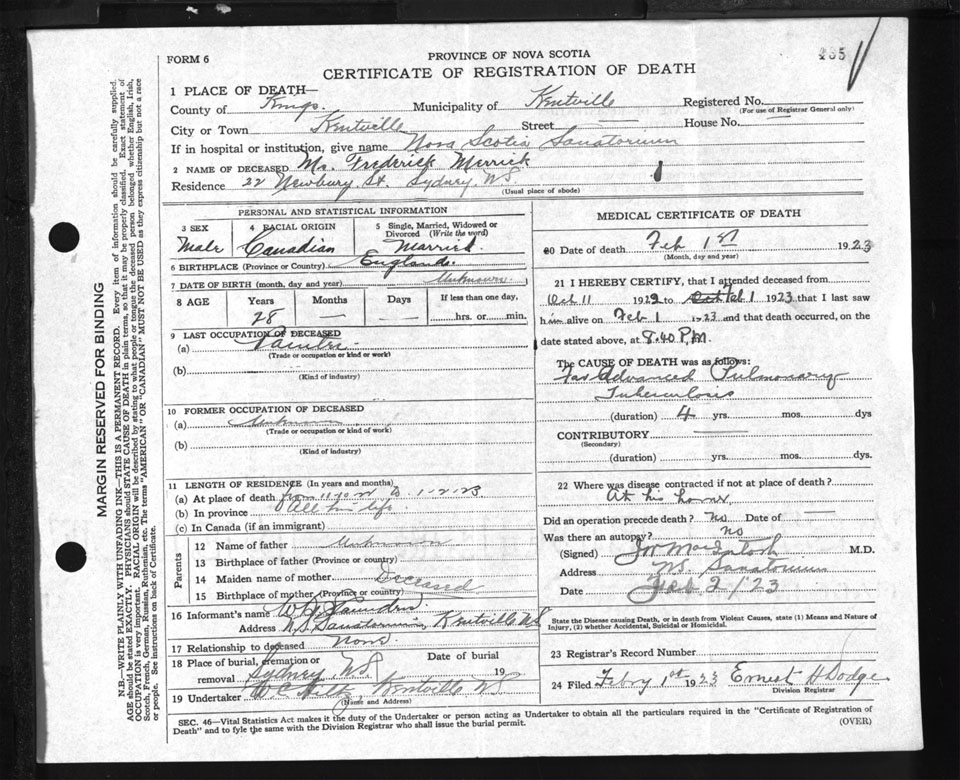 FORM 6
PROVINCE OF NOVA SCOTIA
CERTIFICATE OF REGISTRATION OF DEATH
1 PLACE OF DEATH—
County of Kings. Municipality of Kentville Registered No.
(For use of Registrar General only)
City or Town Kentville Street — House No. —
If in hospital or institution, give name Nova Scotia Sanatorium
2 NAME OF DECEASED Mr. Frederick Merrick
Residence 22 Newbury St. Sydney, NS
(Usual place of abode)
PERSONAL AND STATISTICAL INFORMATION
3 SEX 4 RACIAL ORIGIN 5 Single, Married, Widowed or
Divorced (Write the word)
Male Canadian Married.
6 BIRTHPLACE (Province or Country) England.
7 DATE OF BIRTH (month, day and year) Unknown.
8 AGE Years Months Days If less than one day,
28 — — hrs. or min.
9 LAST OCCUPATION OF DECEASED
(a) Painter
(Trade or occupation or kind of work)
(b)
(Kind of industry)
10 FORMER OCCUPATION OF DECEASED
(a) Unknown
(Trade or occupation or kind of work)
(b)
(Kind of industry)
11 LENGTH OF RESIDENCE (In years and months)
(a) At place of death from 11-10-22 to 1-2-23
(b) In province All his life
(c) In Canada (if an immigrant)
Parents
12 Name of father Unknown
13 Birthplace of father (Province or country)
14 Maiden name of mother Deceased
15 Birthplace of mother (Province or country)
16 Informant's name Saunders
Address N.S. Sanatorium, Kentville NS
17 Relationship to deceased None.
18 Place of burial, cremation or Date of burial
removal Sydney, NS 19
19 Undertaker Kentville NS
(Name and Address)
MEDICAL CERTIFICATE OF DEATH
20 Date of death Feb 1st 1923
(Month, day and year)
21 I HEREBY CERTIFY, that I attended deceased from
Oct 11 1922 to Oct Feb 1 1923 that I last saw
him alive on Feb 1 1923 and that death occurred, on the
date stated above, at 8.40 P.M.
The CAUSE OF DEATH was as follows:
Far Advanced Pulmonary
Tuberculosis
(duration) 4 yrs. mos. dys
CONTRIBUTORY —
(Secondary)
(duration) yrs. mos. dys.
22 Where was disease contracted if not at place of death?
At his home
Did an operation precede death? No Date of —
Was there an autopsy? No
(Signed) MacIntosh M.D.
Address NS Sanatorium
Date Feb 2/23
State the Disease causing Death, or in death from Violent Causes, state (1) Means and Nature of
Injury, (2) whether Accidental, Suicidal or Homicidal.
23 Registrar's Record Number
24 Filed Febry 1st 1923 Ernest H Dodge
Division Registrar
SEC. 46—Vital Statistics Act makes it the duty of the Undertaker or person acting as Undertaker to obtain all the particulars required in the "Certificate of Registration of
Death" and to fyle the same with the Division Registrar who shall issue the burial permit. (OVER)
MARGIN RESERVED FOR BINDING
N.B.—WRITE PLAINLY WITH UNFADING INK—THIS IS A PERMANENT RECORD. Every item of information should be carefully supplied.
AGE should be stated EXACTLY. PHYSICIANS should STATE CAUSE OF DEATH in plain terms, so that it may be properly classified. Exact statement of
OCCUPATION is very important. RACIAL ORIGIN will be described by stating to what people or tongue the deceased person belonged whether English, Irish,
Scotch, French, German, Russian, Ruthenian, etc. The terms "AMERICAN" OR "CANADIAN" MUST NOT BE USED as they express citizenship but not a race
or people. See instructions on back of Certificate.